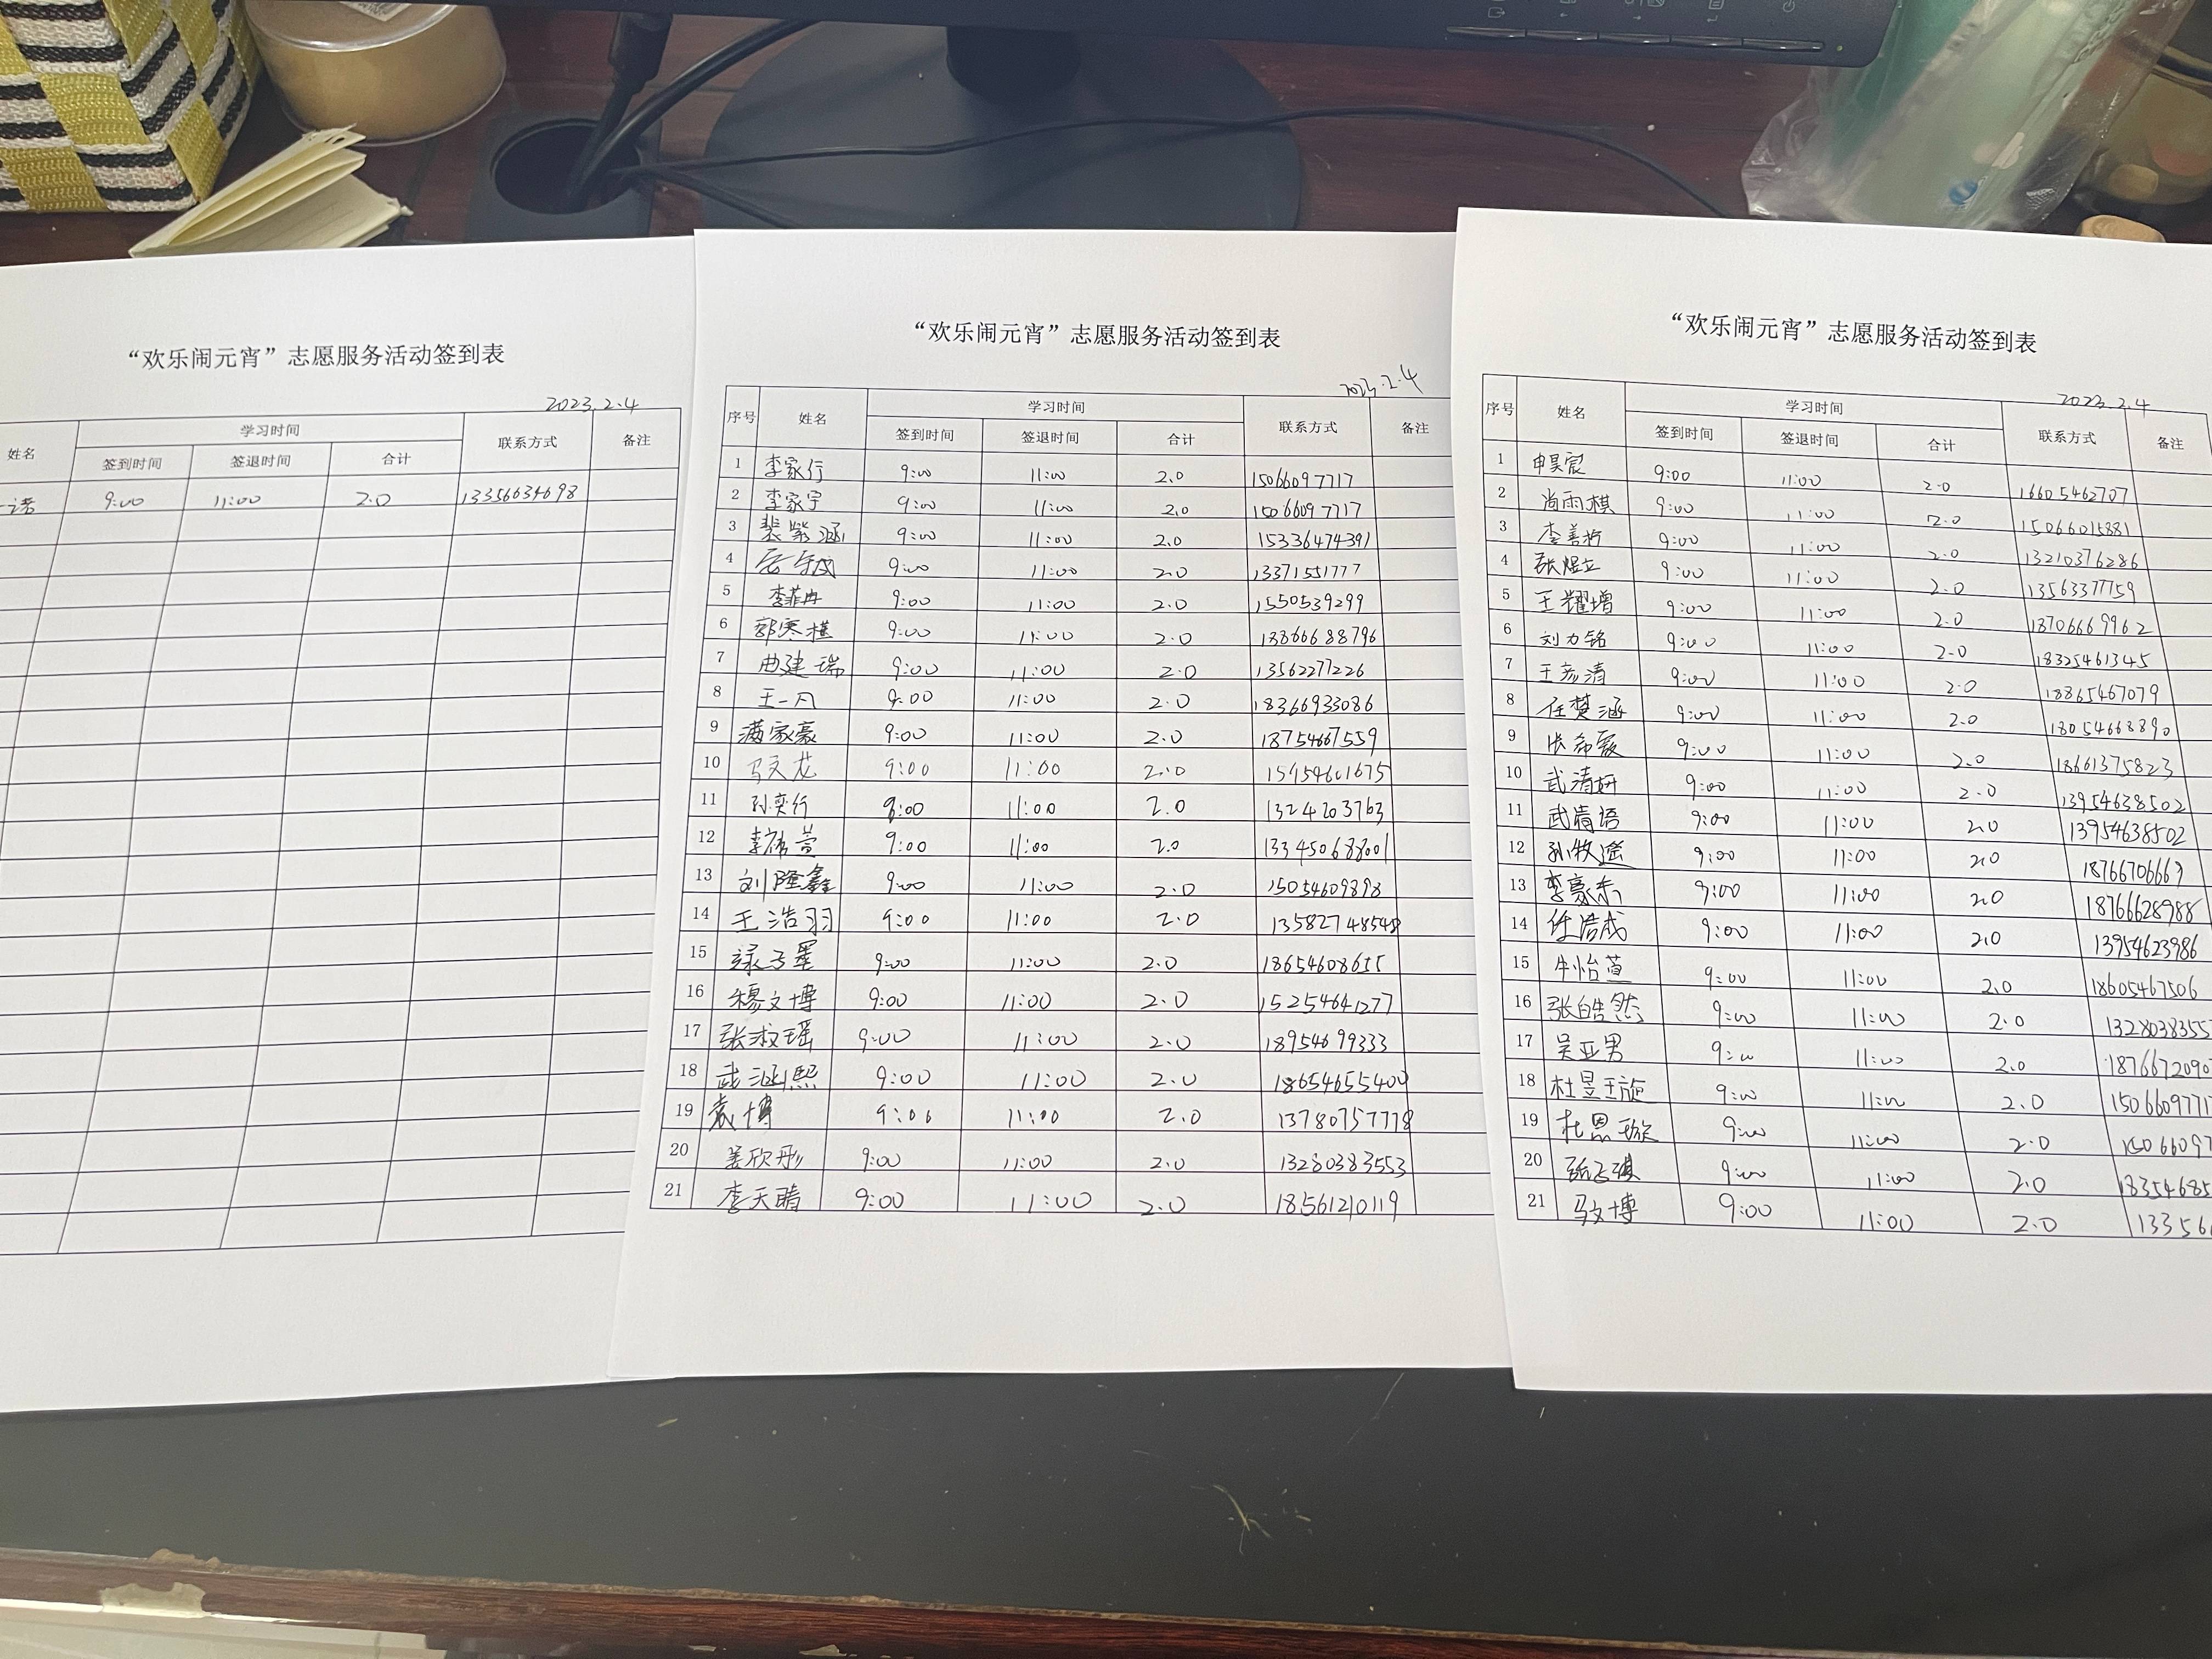 “欢乐闹元宵”志愿服务活动签到表
2023.2.4
姓名 学习时间 联系方式 备注
签到时间 签退时间 合计
诺 9:00 11:00 2.0 13356634698
“欢乐闹元宵”志愿服务活动签到表
2023.2.4
序号 姓名 学习时间 联系方式 备注
签到时间 签退时间 合计
1 李家行 9:00 11:00 2.0 15066097717
2 李家宇 9:00 11:00 2.0 15066097717
3 裴紫涵 9:00 11:00 2.0 15336474391
4 9:00 11:00 2.0 13371551777
5 李菲冉 9:00 11:00 2.0 1550539299
6 郭寒棋 9:00 11:00 2.0 13866688796
7 曲建瑞 9:00 11:00 2.0 13562277226
8 王一凡 9:00 11:00 2.0 18366933086
9 满家豪 9:00 11:00 2.0 18754667559
10 马文龙 9:00 11:00 2.0 15954601675
11 孙奕行 9:00 11:00 2.0 1324203763
12 李祎萱 9:00 11:00 2.0 133450688001
13 刘隆鑫 9:00 11:00 2.0 15054609898
14 王浩羽 9:00 11:00 2.0 13582748548
15 9:00 11:00 2.0 18654608655
16 穆文博 9:00 11:00 2.0 15254641277
17 张淑瑶 9:00 11:00 2.0 18954699333
18 武涵熙 9:00 11:00 2.0 18654655400
19 袁博 9:00 11:00 2.0 13780757778
20 姜欣彤 9:00 11:00 2.0 13280383553
21 李天晴 9:00 11:00 2.0 18561210119
“欢乐闹元宵”志愿服务活动签到表
2023.2.4
序号 姓名 学习时间 联系方式 备注
签到时间 签退时间 合计
1 申昊宸 9:00 11:00 2.0 16605462707
2 尚雨棋 9:00 11:00 2.0 15066015881
3 9:00 11:00 2.0 13210376286
4 张煜立 9:00 11:00 2.0 13563377759
5 王耀增 9:00 11:00 2.0 13706669962
6 刘力铭 9:00 11:00 2.0 18325461345
7 王彦清 9:00 11:00 2.0 18865467079
8 任梦涵 9:00 11:00 2.0 18054668890
9 9:00 11:00 2.0 18661375823
10 武清妍 9:00 11:00 2.0 13954638502
11 武清语 9:00 11:00 2.0 13954638502
12 孙牧遥 9:00 11:00 2.0 18766706663
13 李豪东 9:00 11:00 2.0 18766628988
14 任浩成 9:00 11:00 2.0 13954623986
15 牛怡萱 9:00 11:00 2.0 18605467506
16 张皓然 9:00 11:00 2.0 1328038355
17 吴亚男 9:00 11:00 2.0 1876672090
18 杜昱璇 9:00 11:00 2.0 1506609771
19 杜恩璇 9:00 11:00 2.0 15066097
20 9:00 11:00 2.0 18354685
21 马文博 9:00 11:00 2.0 13356